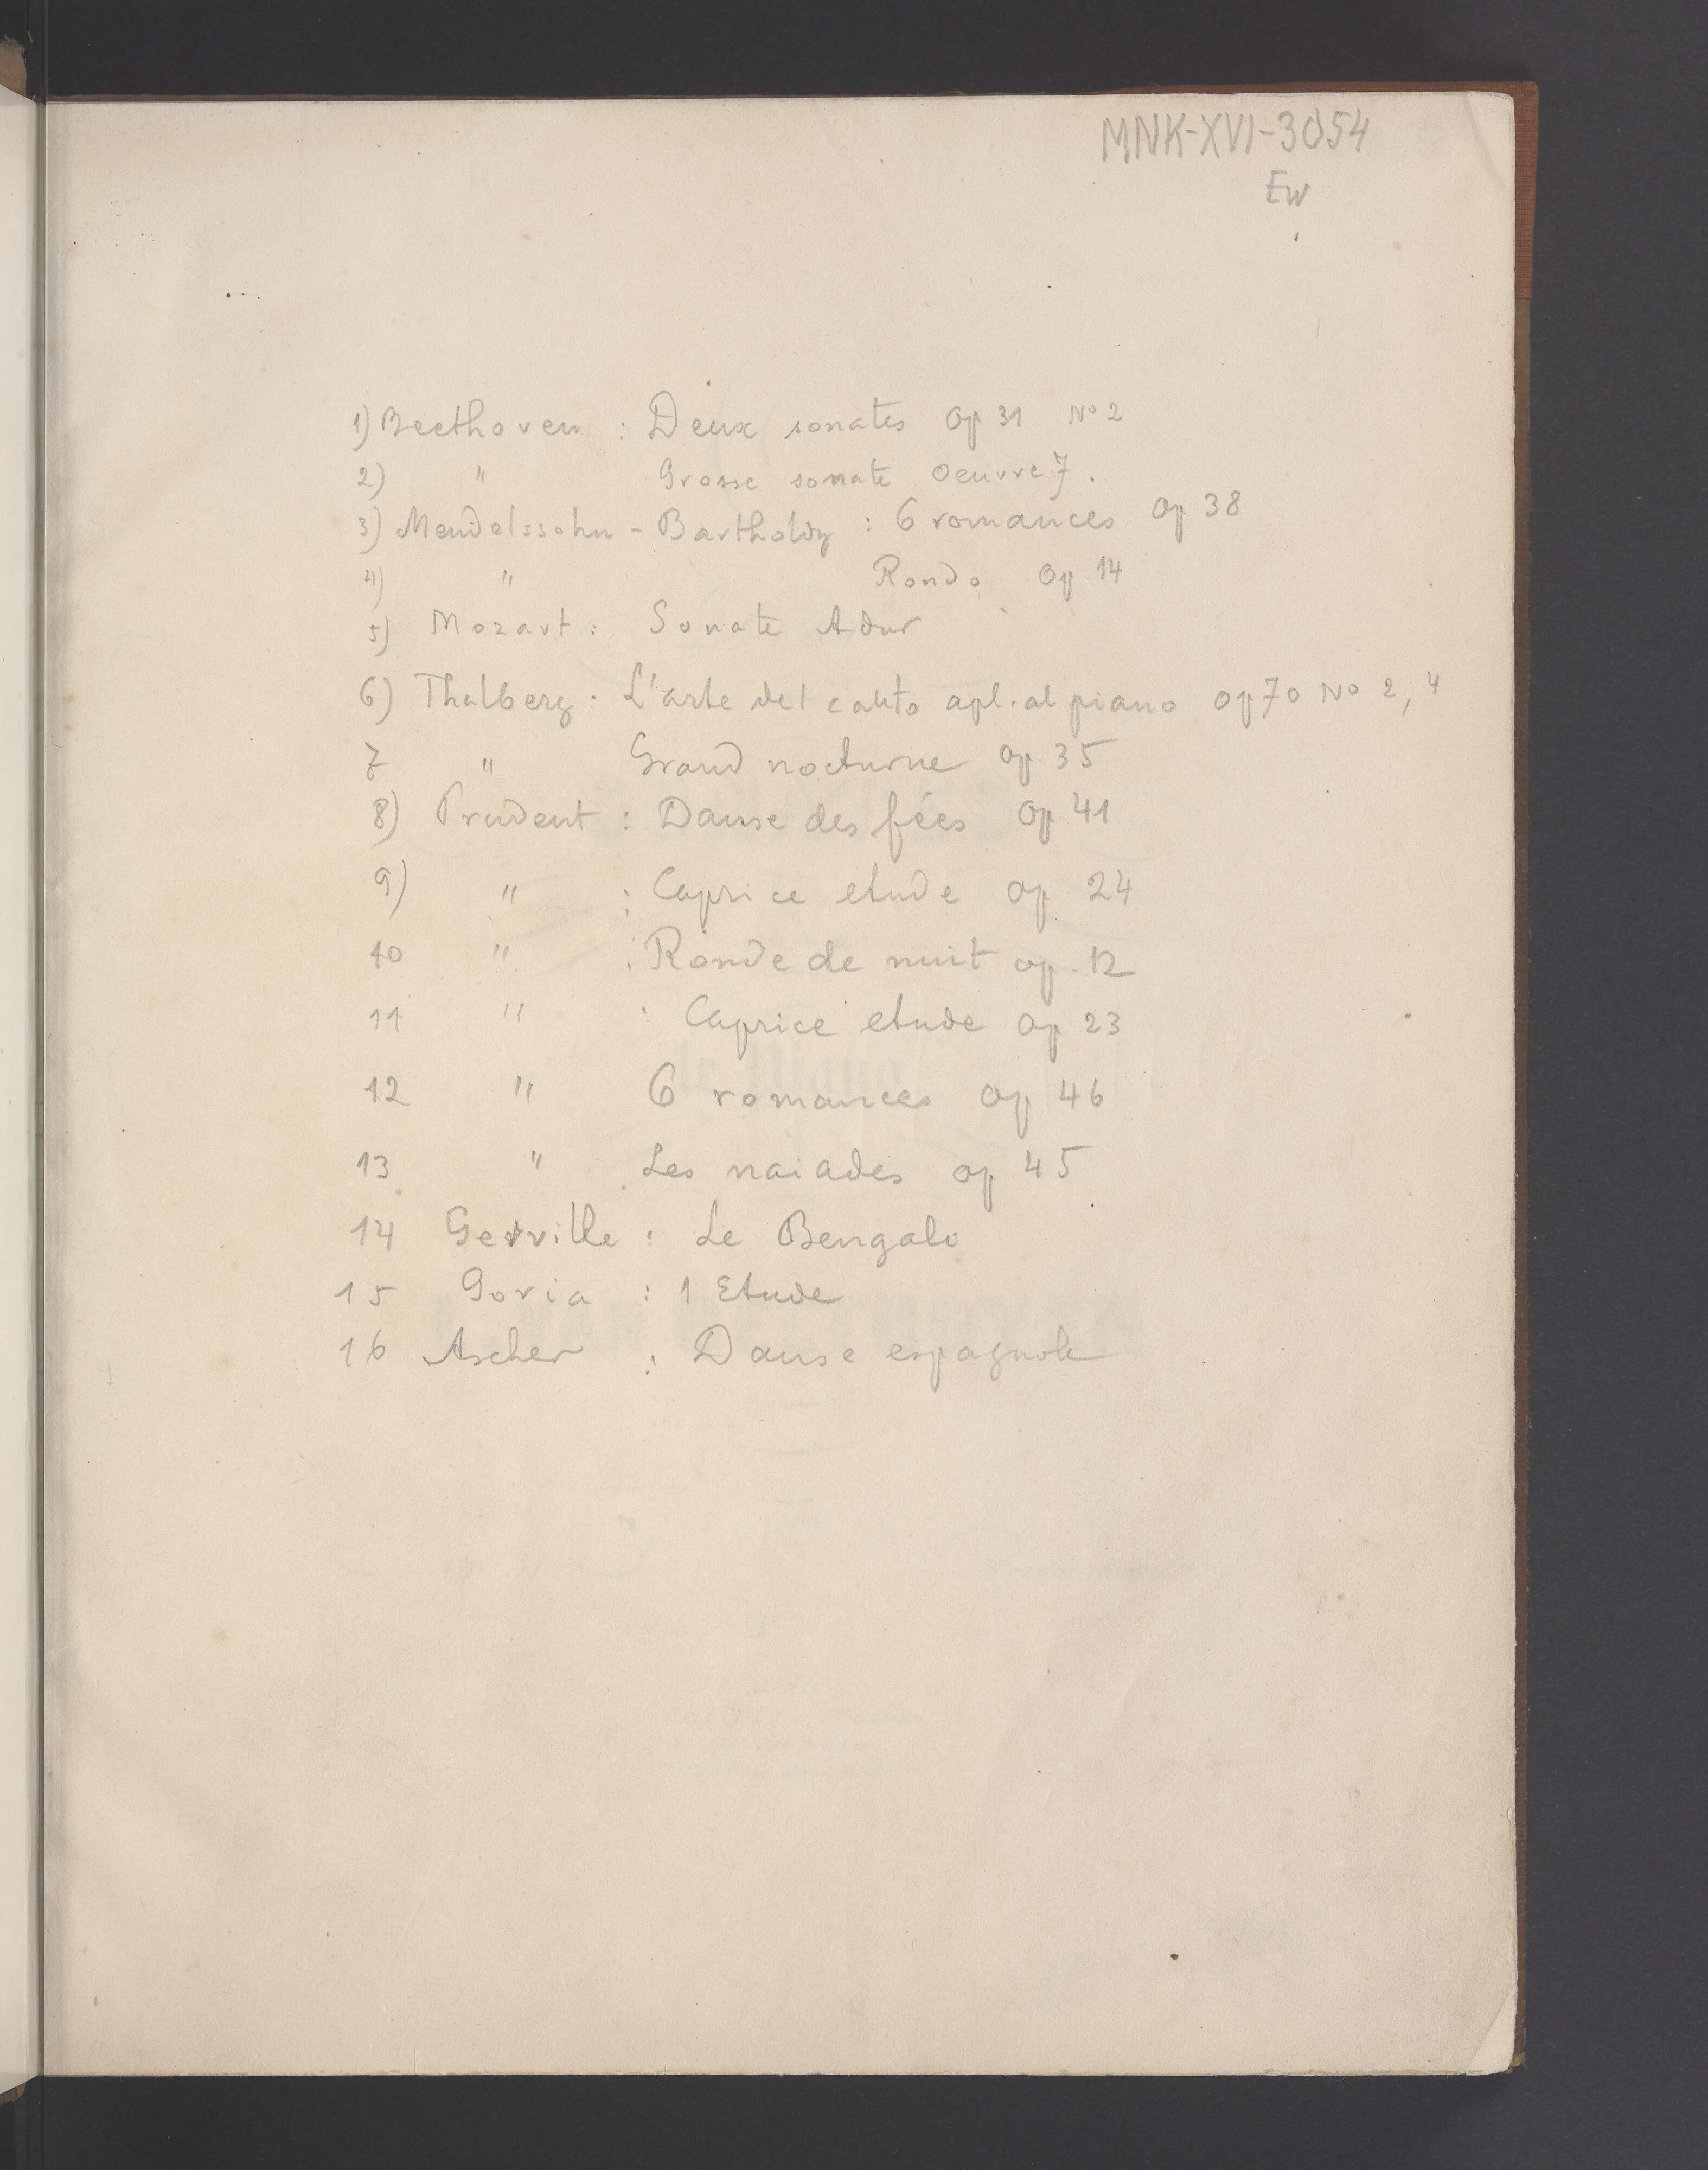 MNK-XVI-3054
Ew
1) Beethoven : Deux sonates Op 31 No 2
2) " Grosse sonate Oeuvre 7.
3) Mendelssohn - Bartholdy : 6 romances Op 38
4) " Rondo Op. 14
5) Mozart : Sonate Adur
6) Thalberg : L'arte del canto apl. al piano op 70 No 2, 4
7 " Grand nocturne Op. 35
8) Prudent : Danse des fées Op 41
9) " : Caprice etude Op 24
10 " : Ronde de nuit op. 12
11 " : Caprice etude Op 23
12 " 6 romances Op 46
13 " Les naiades op 45
14 Gerville : Le Bengalo
15 Goria : 1 Etude
16 Ascher : Danse espagnole